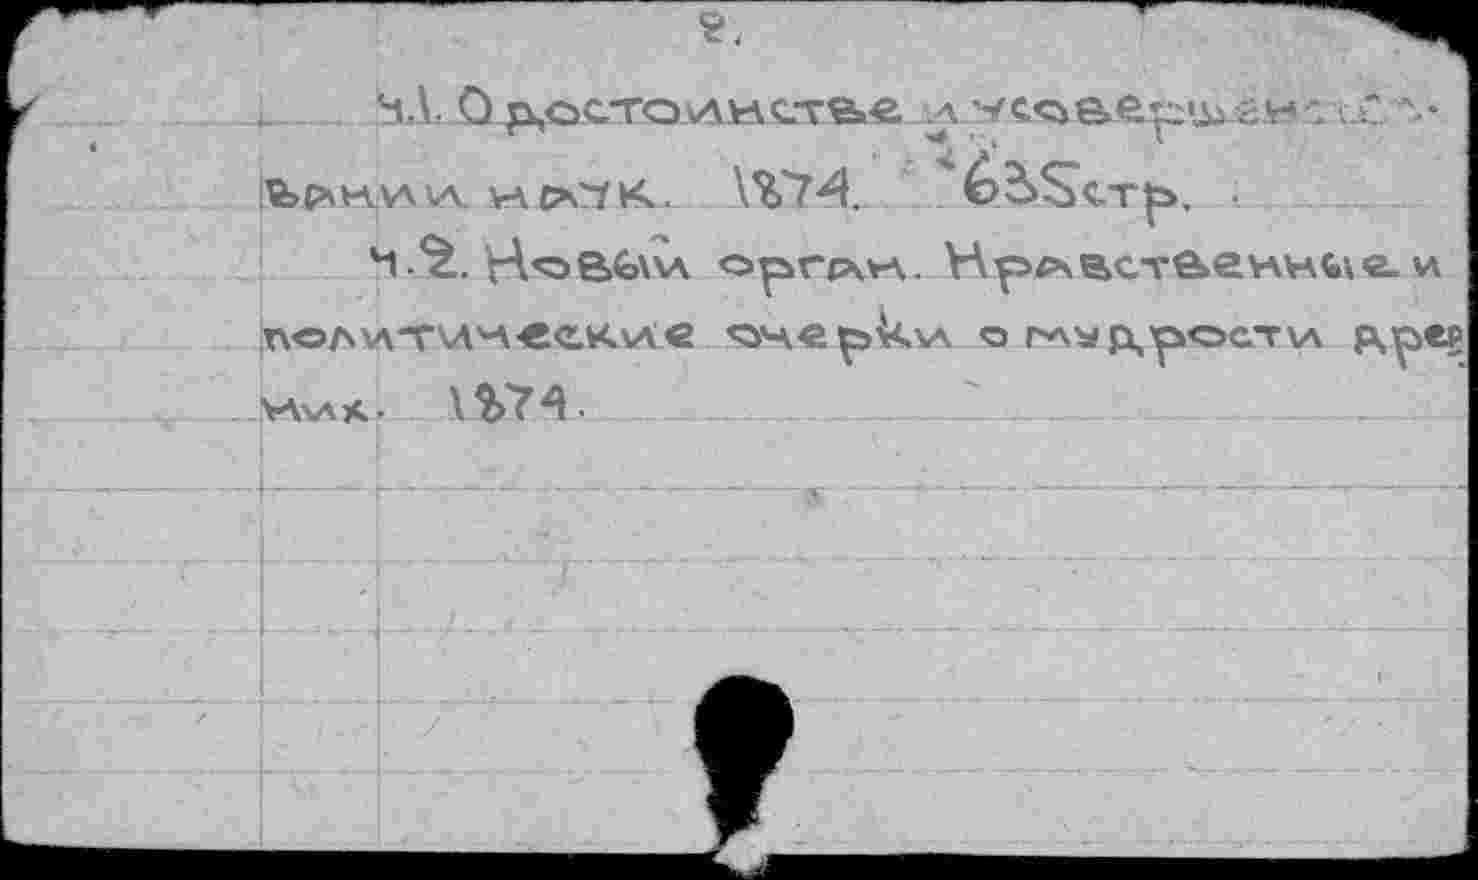 2.
Ч.1. О достоинстве и усовершенство-
вании наук. 1874. 635стр.
Ч.2. Новый орган. Нравственные и
политические очерки о мудрости древ
них. 1874.